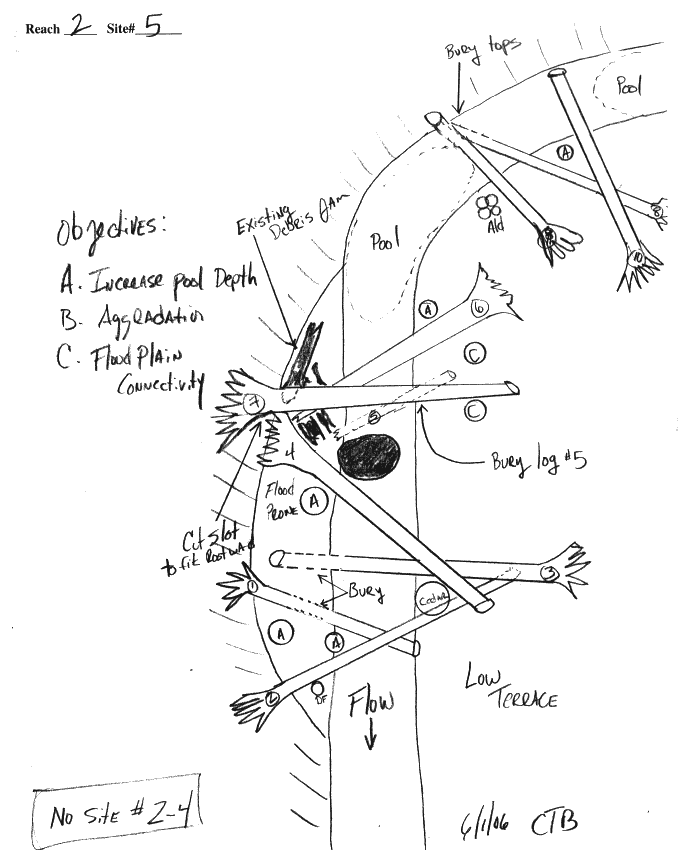 Reach 2 Site# 5
Bury tops
Pool
A
8
Ald
9
10
Existing
Debris Jam
Pool
Objectives:
A. Increase pool Depth
B. Aggradation
C. Flood Plain
Connectivity
A
6
C
7
C
5
4
Bury log #5
Flood
Prone
A
Cut slot
to fit Rootwad
3
1
Bury
Cedar
A
A
2
DF
Flow
Low
Terrace
No Site # 2-4
6/1/06 CTB